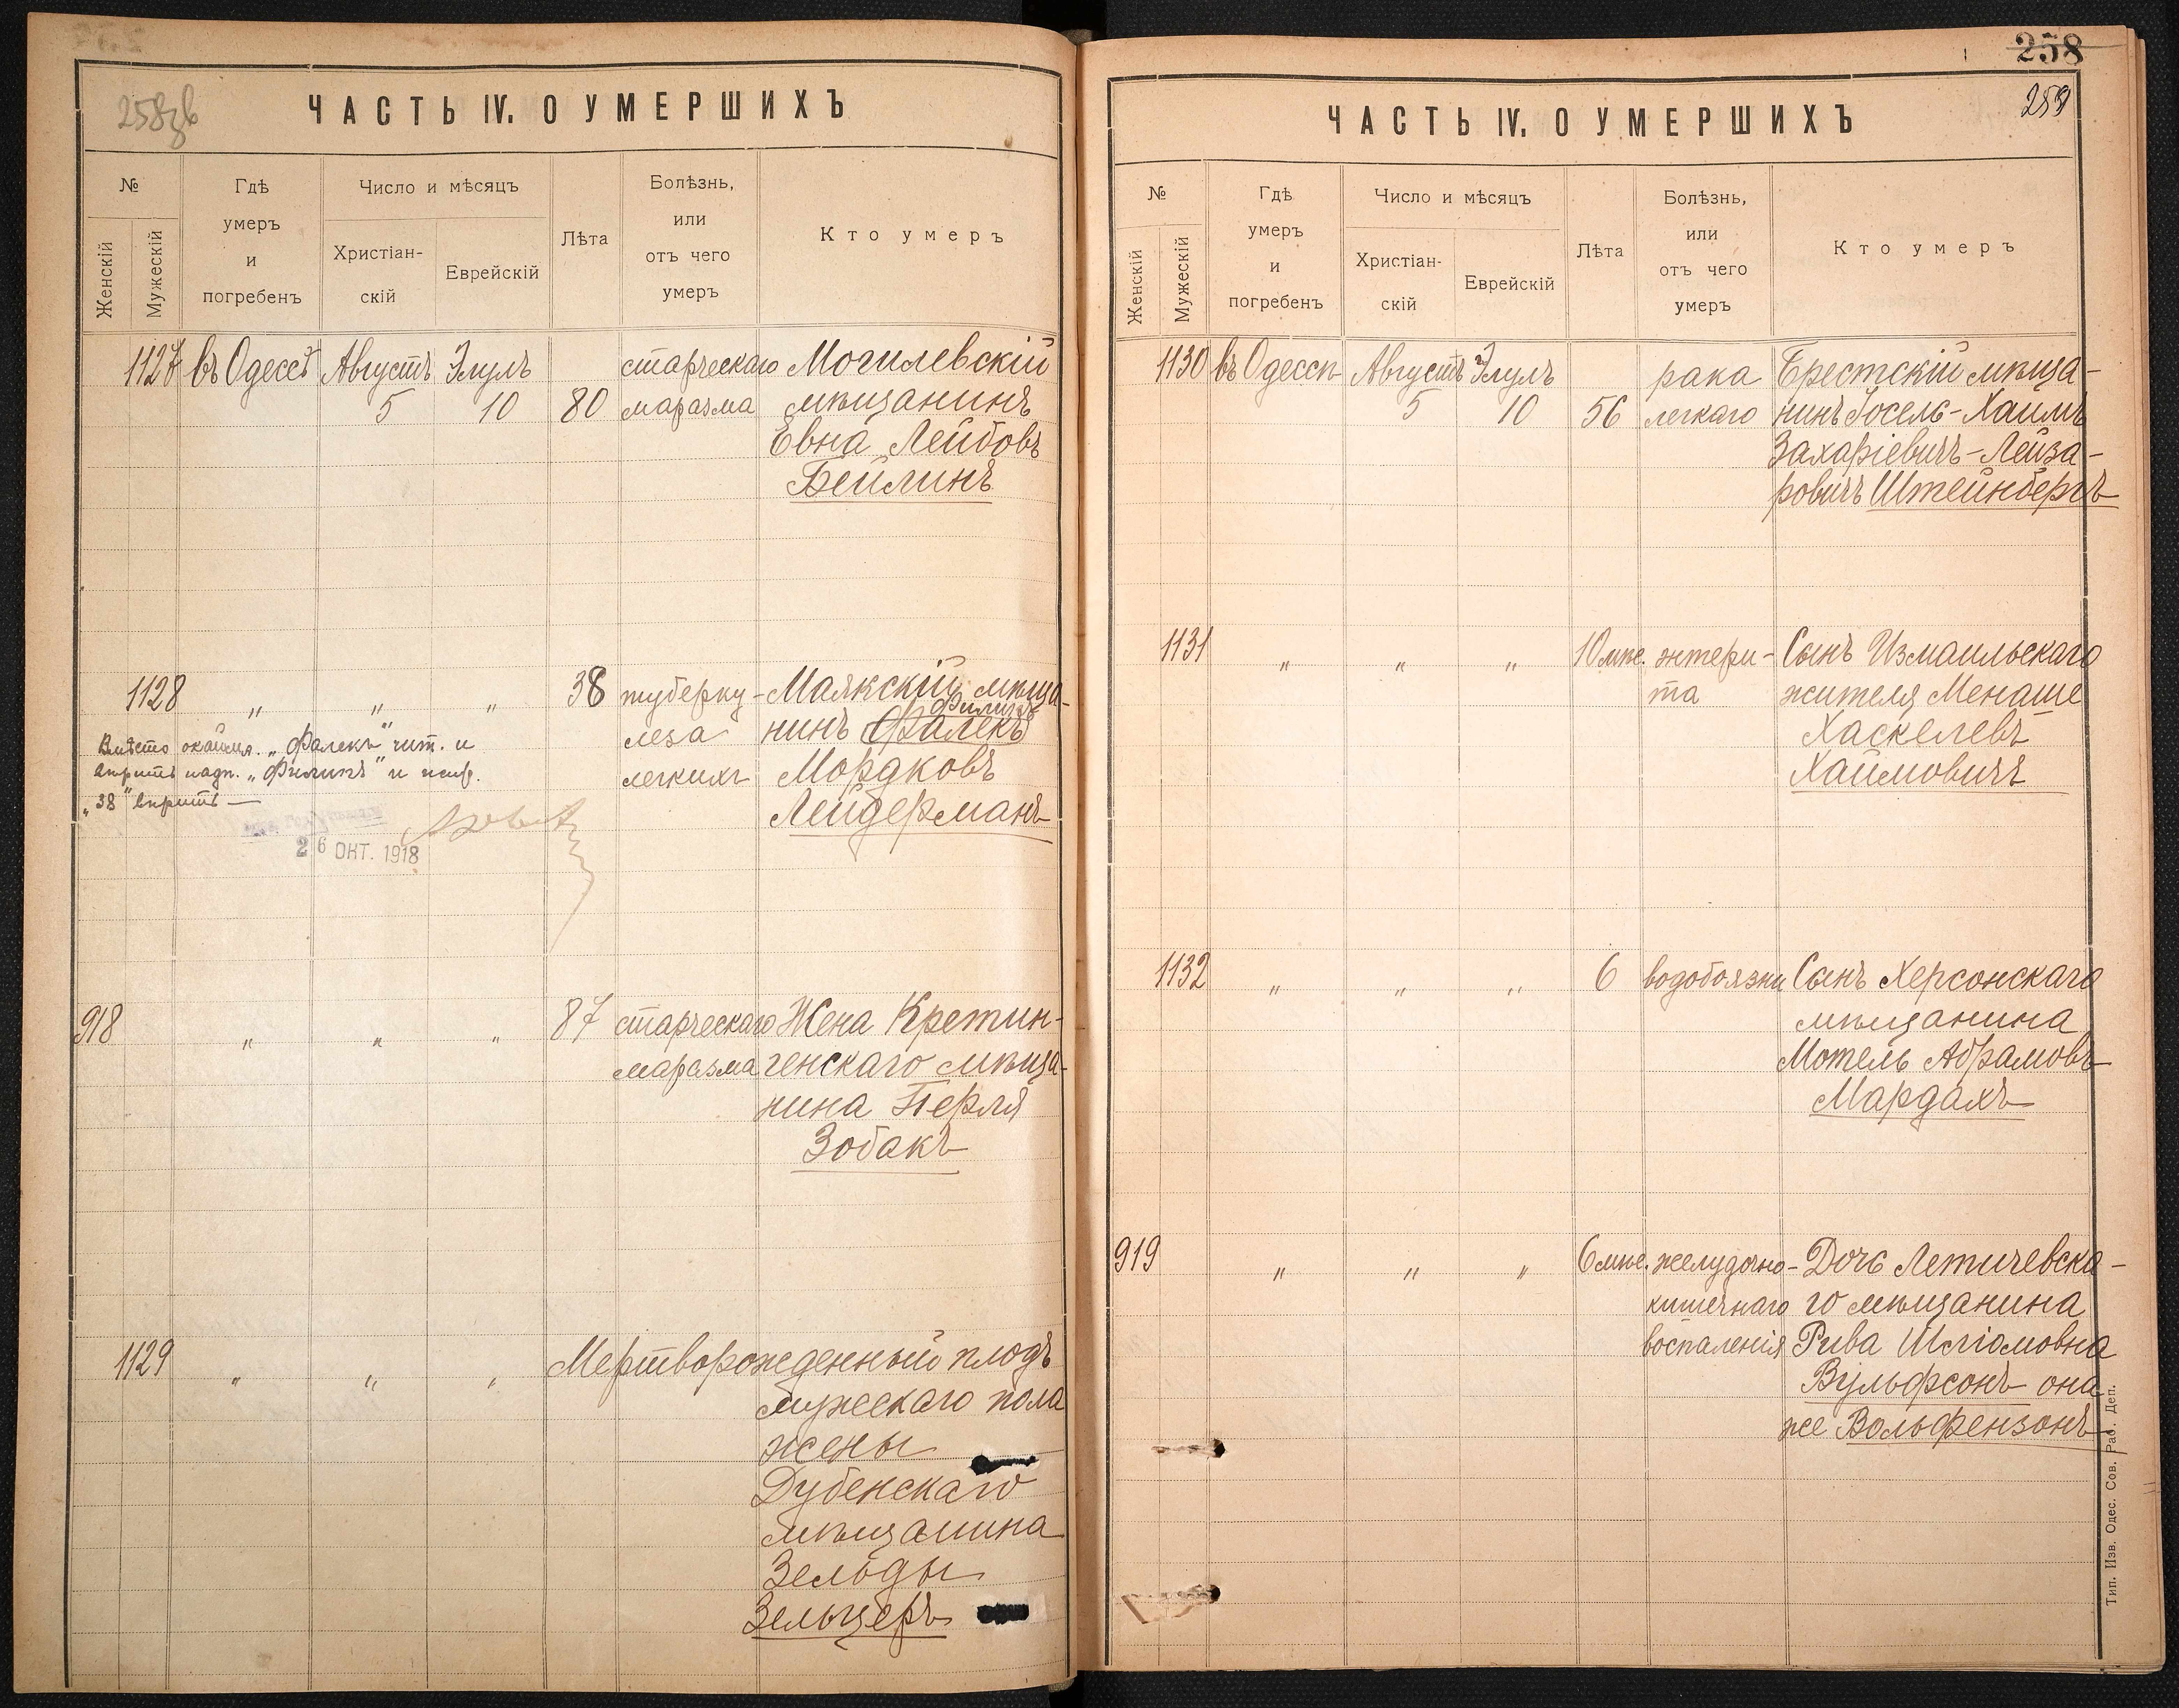 258зв
ЧАСТЬ IV. О УМЕРШИХЪ
№
Женскій
Мужескій
Гдѣ
умеръ
и
погребенъ
Число и мѣсяцъ
Христіан-
скій
Еврейскій
Лѣта
Болѣзнь,
или
отъ чего
умеръ
Кто умеръ
1127 въ Одессѣ Августъ Элулъ старческаго Могилевскій
5 10 80 маразма мѣщанинъ
Евна Лейбовъ
Бейлинъ
1128 „ „ „ 38 туберку- Маякскій мѣща-
Филикъ
нинъ Фалекъ
леза
легкихъ Мордковъ
Лейдерманъ
Вмѣсто окаймл. „Фалекъ" чит. и
вѣрить надп. „Филикъ" и испр.
„38" вѣрить —
26 ОКТ. 1918
918 „ „ „ 87 старческаго Жена Кретин-
маразма генскаго мѣща-
нина Перля
Зобакъ
1129 „ „ „ Мертворожденный плодъ
мужескаго пола
жены
Дубенскаго
мѣщанина
Зельды
Зельцеръ
258
259
ЧАСТЬ IV. О УМЕРШИХЪ
№
Женскій
Мужескій
Гдѣ
умеръ
и
погребенъ
Число и мѣсяцъ
Христіан-
скій
Еврейскій
Лѣта
Болѣзнь,
или
отъ чего
умеръ
Кто умеръ
1130 въ Одессѣ Августъ Элулъ рака Брестскій мѣща-
5 10 56 легкаго нинъ Іосель-Хаимъ
Захаріевичъ-Лейза-
ровичъ Штейнбергъ
1131 „ „ „ 10 мѣс. энтери- Сынъ Измаильскаго
та жителя Менаше
Хаскелевъ
Хаймовичъ
1132 „ „ „ 6 водобоязни Сынъ Херсонскаго
мѣщанина
Мотель Абрамовъ
Мардахъ
919 „ „ „ 6 мѣс. желудочно- Дочь Летичевска-
кишечнаго го мѣщанина
воспаленія Рива Шліомовна
Вульфсонъ она
же Вольфензонъ
Тип. Изв. Одес. Сов. Раб. Деп.